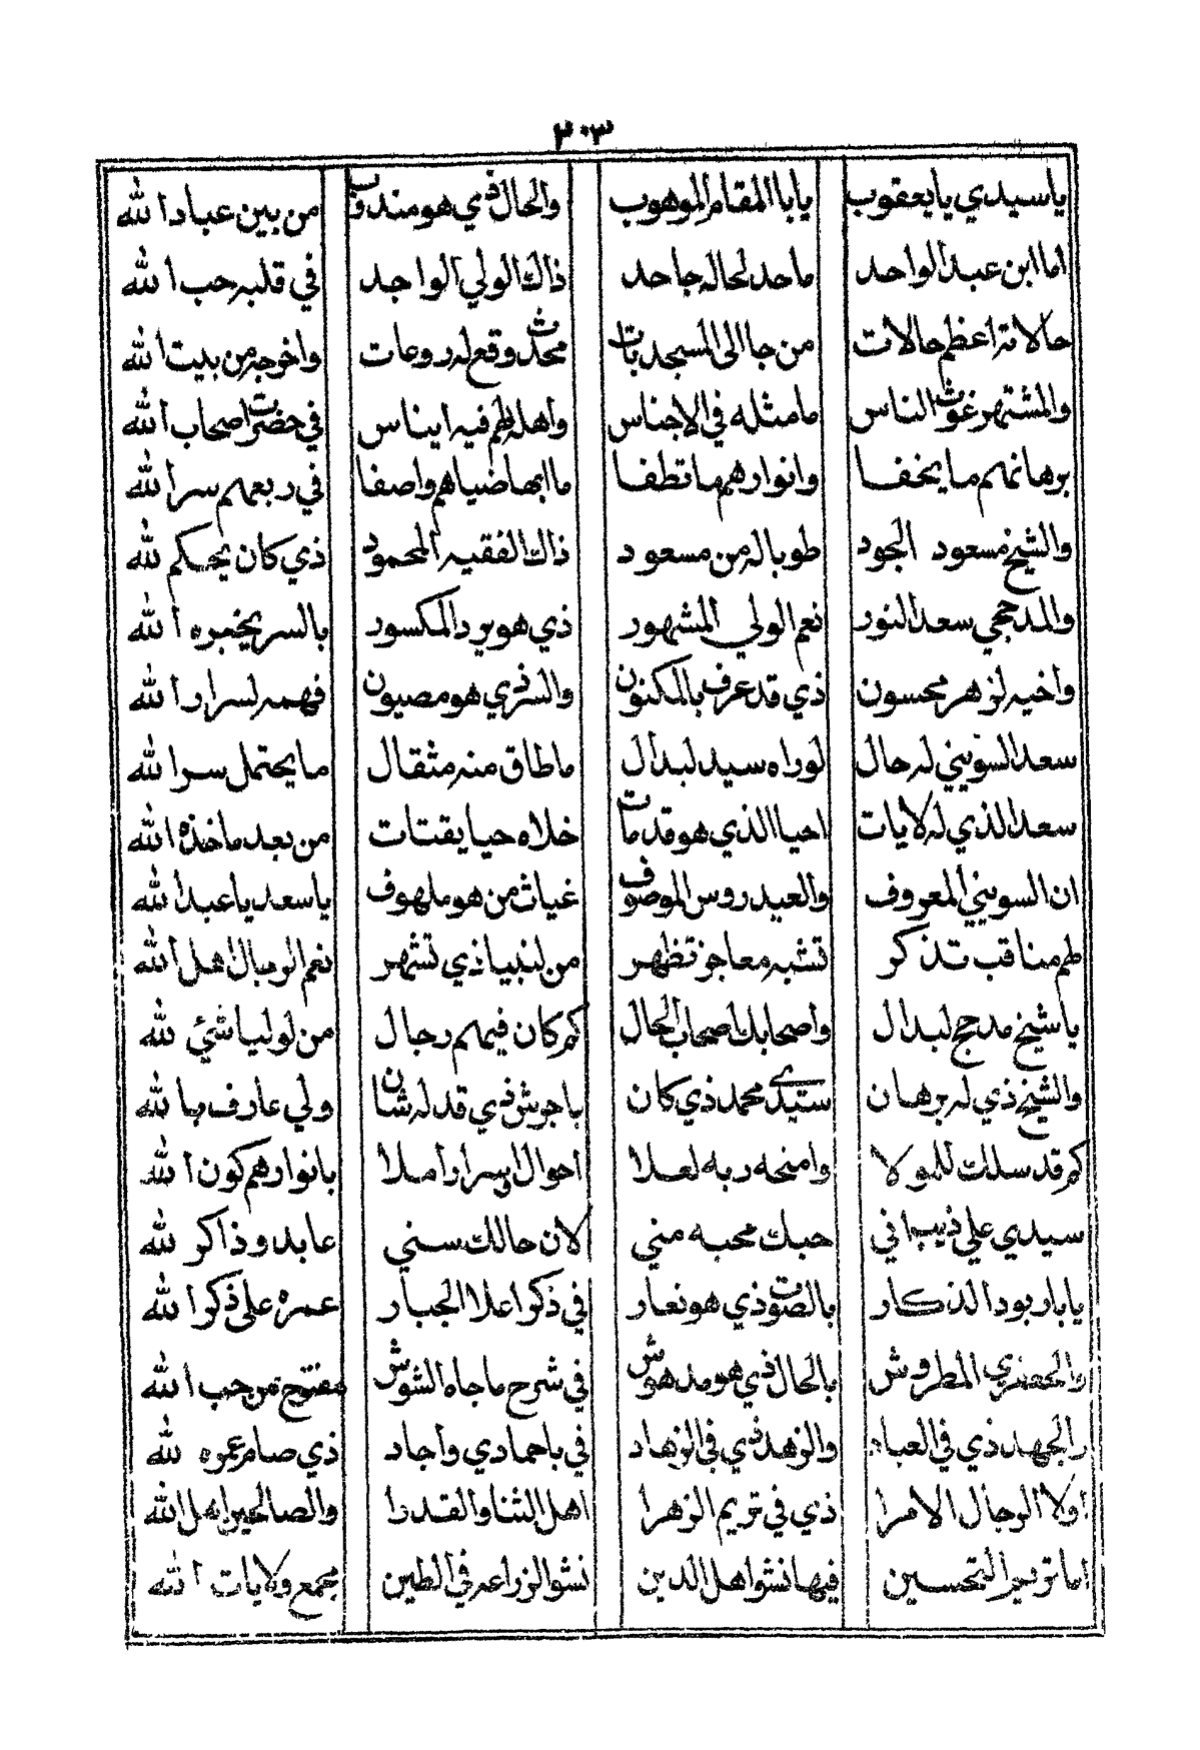 ٣٠٣
ياسيدي يايعقوب يابا المقام الموهوب والحال ذي هو مندوب من بين عباد الله
اما ابن عبد الواحد ماحد لحاله جاحد ذاك الولي الواجد في قلبه حب الله
حالاته اعظم حالات من جا الى المسجد بات محدث وقع له روعات واخرجه من بيت الله
والمشتهر غوث الناس مامثله في الاجناس واهله لهم فيه ايناس في حضرت اصحاب الله
برهانهم مايخفا وانوارهم ماتطفا ما ابها ضياهم واصفا في ربعهم سر الله
والشيخ مسعود الجود طوباله من مسعود ذاك الفقيه المحمود ذي كان يحكم لله
والمدحجي سعد النور نعم الولي المشهور ذي هو يرد المكسور بالسر يخبره الله
واخيه لزهر محسون ذي قد عرف بالمكنون والسر ذي هو مصيون فهمه لسرار الله
سعد السويني له حال لوراه سيد لبدال ماطاق منه مثقال مايحتمل سر الله
سعد الذي له لايات احيا الذي هو قد مات خلاه حيا يقتات من بعد ماخذه الله
ان السويني المعروف والعيدروس الموصوف غياث من هو ملهوف ياسعد ياعبد الله
لهم مناقب تذكر تشبه معاجز تظهر من لنبيا ذي تشهر نعم الرجال اهل الله
ياشيخ مدحج لبدال واصحابك اصحاب الحال كم كان فيهم رجال من لوليا شئي لله
والشيخ ذي له برهان سيدي محمد ذي كان باجرش ذي قد له شان ولي عارف بالله
كم قد سلك للمولا وامنحه ربه لعلا احوال وسرار املا بانوارهم كون الله
سيدي علي ذيب اني حبك محبه مني لان حالك سني عابد وذاكر لله
يابار بود الذكار بالصوت ذي هو نعار في ذكر اعلا الجبار عمره على ذكر الله
والحضري المطروش بالحال ذي هو مدهوش في شرح ماجاه الشوش مفتوح من حب الله
والجهد ذي في العباد والزهد ذي في الزهاد في باحمادي واجاد ذي صام عمره لله
اولا الرجال الامرا ذي في تريم الزهرا اهل الثنا والقدرا والصالحين اهل الله
اما تريم التحسين فيها نشوا اهل الدين نشو الزراعه في الطين مجمع ولايات الله